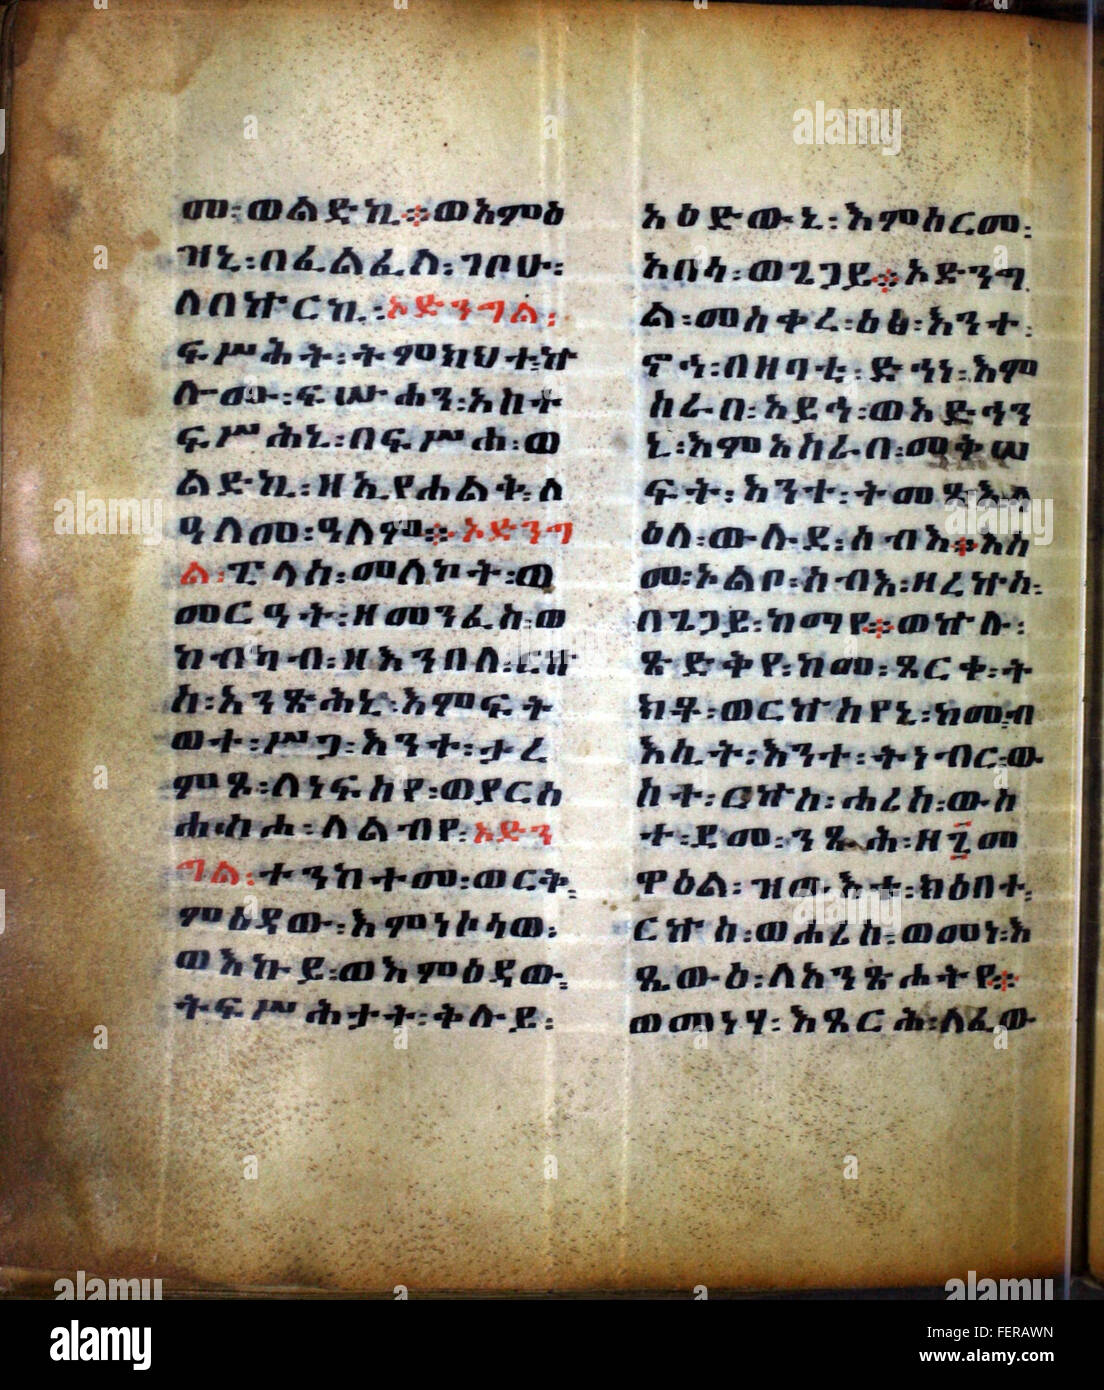 መ፡ወልድኪ፨ወእምዕ
ዝኒ፡በፈልፈለ፡ገቦሁ፡
ለበኵርኪ፡ኦድንግል፡
ፍሥሕት፡ትምክህተ፡ኵ
ሉ፡ሙ፡ፍሡሐን፡አከተ
ፍሥሕኒ፡በፍሥሐ፡ወ
ልድኪ፡ዘኢየሐልቅ፡ለ
ዓለመ፡ዓለም፨ኦድንግ
ል፡ፒላስ፡መለኮት፡ወ
መርዓት፡ዘመንፈስ፡ወ
ከብካብ፡ዘእንበለ፡ርኵ
ስ፡አንጽሕኒ፡እምፍት
ወተ፡ሥጋ፡እንተ፡ታረ
ምጾ፡ለነፍስየ፡ወያርስ
ሐስሐ፡ለልብየ፡ኦድን
ግል፡ተንከተመ፡ወርቅ፡
ምዕዳው፡እምነኮላወ፡
ወእኩይ፡ወእምዕዳው፡
ትፍሥሕታት፡ቅሉይ፡
አዕድውኒ፡እምስርመ፡
አበሳ፡ወጌጋይ፨ኦድንግ
ል፡መስቀረ፡ዕፅ፡እንተ፡
ኖኀ፡በዘባቲ፡ድኅነ፡እም
ከራበ፡አይኅ፡ወአድኅን
ኒ፡እምአስራበ፡መቅሠ
ፍት፡እንተ፡ትመጽእ፡ላ
ዕለ፡ውሉደ፡ሰብእ፨እስ
መ፡ኦልቦ፡ሰብእ፡ዘረኵሰ፡
በጌጋይ፡ከማየ፨ወኵሉ፡
ጽድቅየ፡ከመ፡ጸርቀ፡ት
ክቶ፡ወርኵስየኒ፡ከመ፡ብ
እሲት፡እንተ፡ትነብር፡ው
ስተ፡ርኵስ፡ሐረስ፡ውስ
ተ፡ደመ፡ንጹሕ፡ዘ፯መ
ዋዕል፡ዝጡእቱ፡ክዕበተ፡
ርኵስ፡ወሐሪስ፡ወመኑ፡እ
ጼውዕ፡ለአንጽሖትየ፨
ወመነሃ፡እጼርሕ፡ለፈው
alamy
Image ID: FERAWN
www.alamy.com